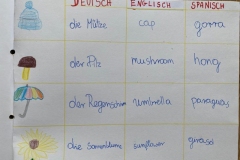 DEUTSCH ENGLISCH SPANISCH
die Mütze cap gorra
der Pilz mushroom hong
der Regenschirm umbrella paraguas
die Sonnenblume sunflower girasol